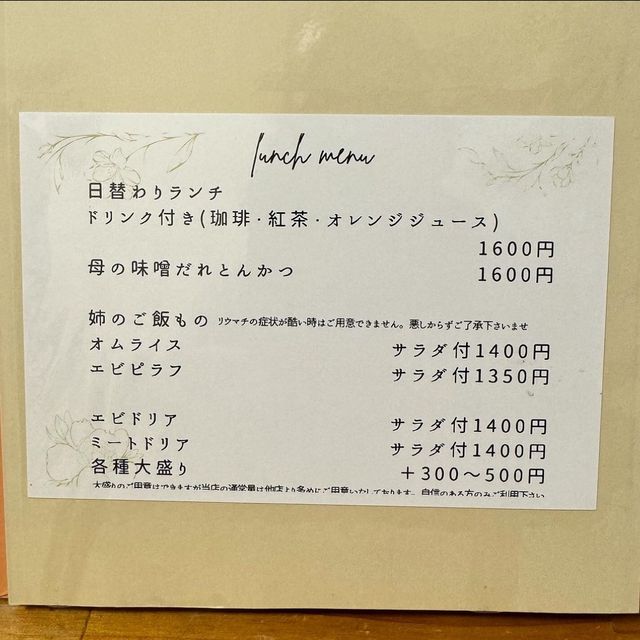 lunch menu
日替わりランチ
ドリンク付き(珈琲・紅茶・オレンジジュース)
1600円
母の味噌だれとんかつ 1600円
姉のご飯もの リウマチの症状が酷い時はご用意できません。悪しからずご了承下さいませ
オムライス サラダ付1400円
エビピラフ サラダ付1350円
エビドリア サラダ付1400円
ミートドリア サラダ付1400円
各種大盛り +300〜500円
大盛りのご用意はできますが当店の通常量は他店より多めにご用意いたしております。自信のある方のみご利用下さい